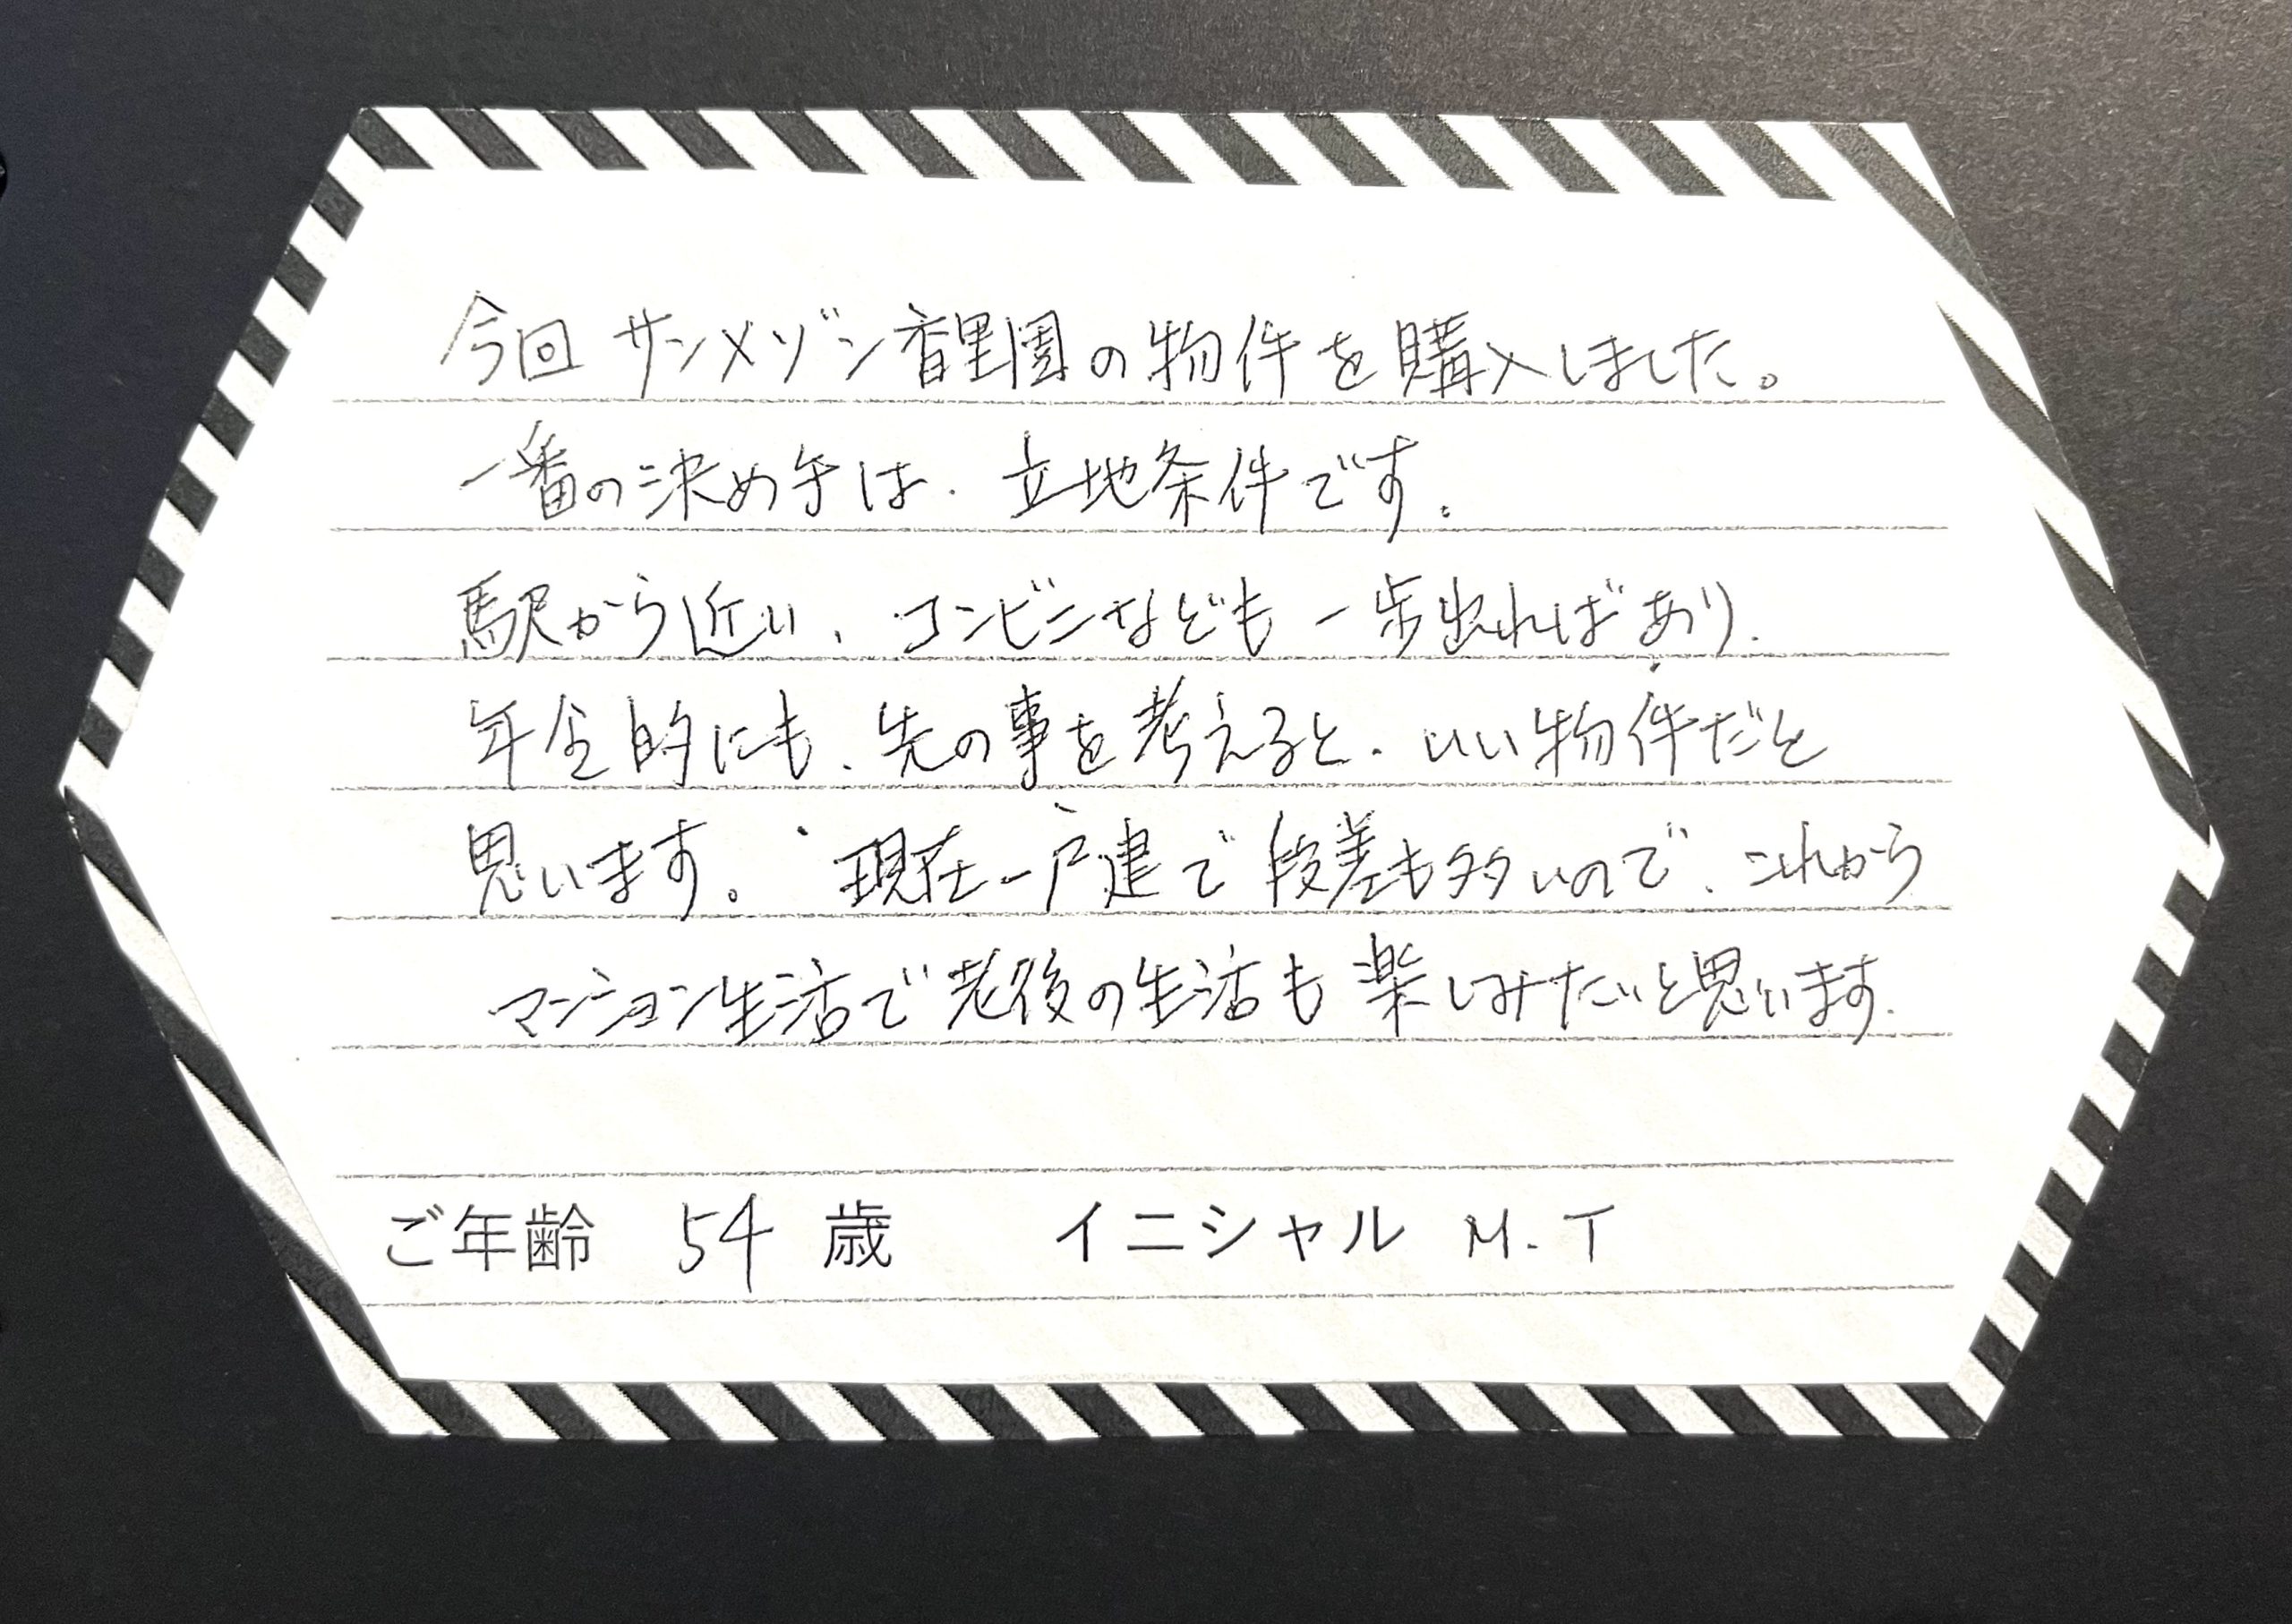 今回 サンメゾン香里園の物件を購入しました。
一番の決め手は、立地条件です。
駅から近い、コンビニなども一歩出ればあり、
年金的にも、先の事を考えると、いい物件だと
思います。現在一戸建で段差も多いので、これから
マンション生活で老後の生活も楽しみたいと思います。
ご年齢 54 歳 イニシャル M.T